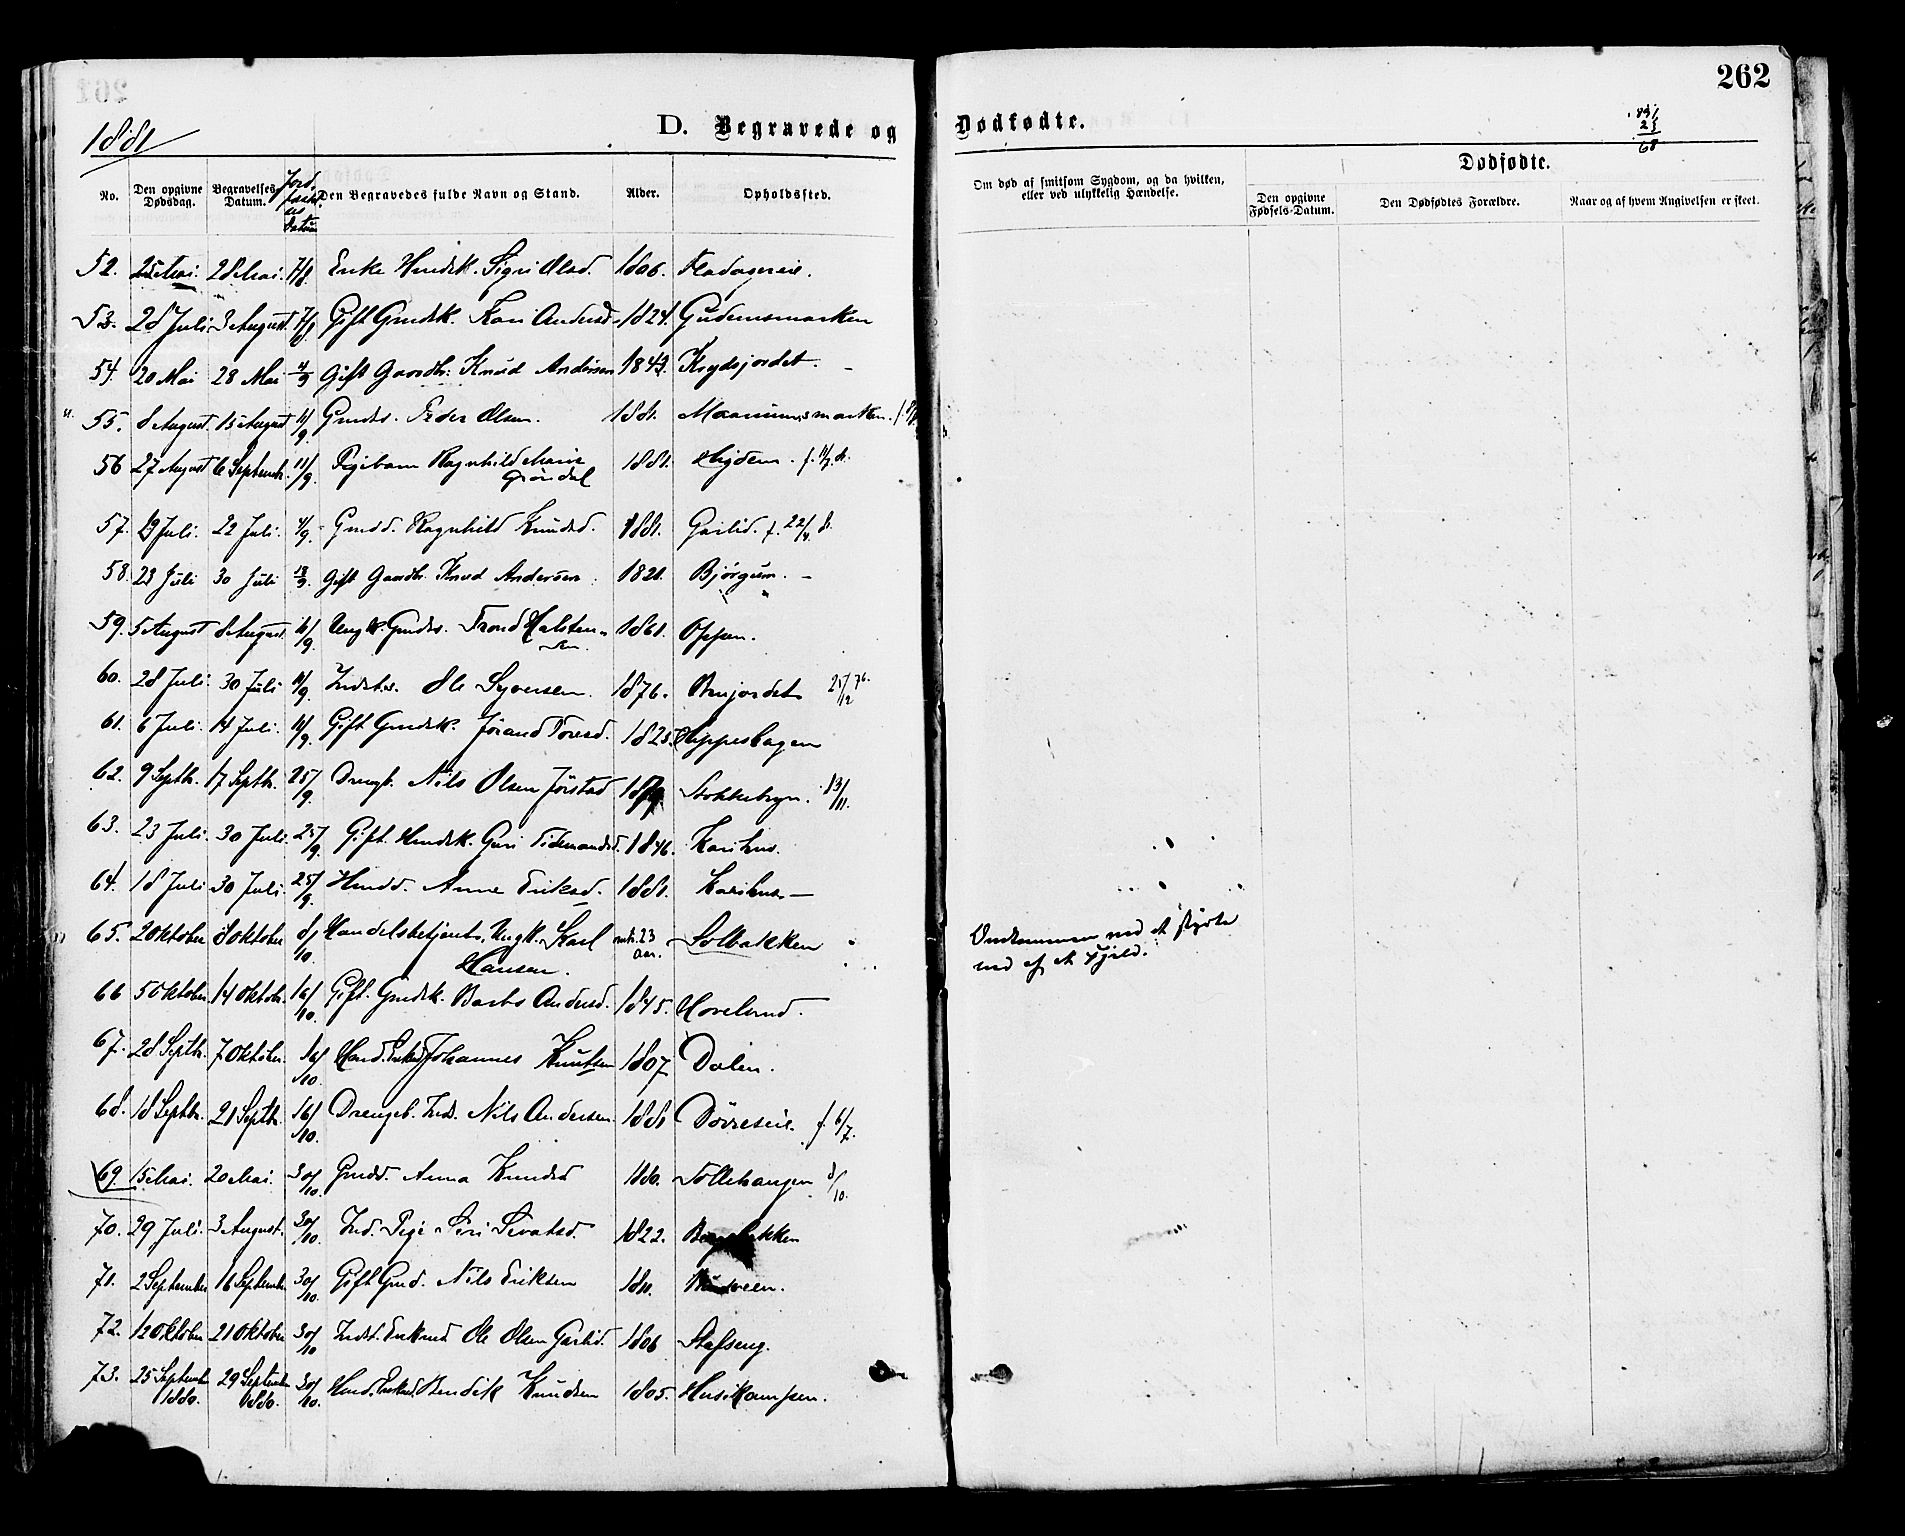 262
1881
D. Begravede og Dødfødte.
1881
25
68
No. Den opgivne Dødsdag. Begravelses-Datum. Jordfæstelses Datum Den Begravedes fulde Navn og Stand. Alder. Opholdssted.
Om død af smitsom Sygdom, og da hvilken, eller ved ulykkelig Hændelse.
Dødfødte.
Den opgivne Fødsels-Datum. Den Dødfødtes Forældre. Naar og af hvem Angivelsen er skeet.
52. 25 Mai. 28 Mai. 7/8 Enke Huusk. Sigri Olsd. 1806. Fladagereie.
53. 28 Juli. 3 August. 7/8 Gift Grndsk. Kari Andersd. 1824. Gudemsmarken
54. 20 Mai 28 Mai 4/9 Gift Gaardbr. Knud Andersen 1843. Krydsjordet.
55. 8 August. 15 August 11/9. Gmds. Peder Olsen. 1881.
56 27 August 6 Septembr. 11/9. Pigebarn Ragnhild Marie
Grøndal 1881.
57. 19 Juli. 22 Juli. 4/9. Gmdd. Ragnhild Knudsd. 1881. Garlid. f. 22/4.
58. 23 Juli 30 Juli 18/9. Gift Gaardbr. Knud Andersen 1821. Bjørgum.
59. 5 August 8 August. 11/9. Ungk. Gmds. Trond Halsten-
sen 1861. Oppen.
60. 28 Juli. 30 Juli 11/9. Inds.s. Ole Syversen. 1876. Brujordet 25/12 76.
61. 6 Juli. 14 Juli. 11/9. Gift Gmdsk. Jørand Toresd. 1825. Slippeshagen
62. 9 Septbr. 17 Septbr. 25/9. Drengb. Nils Olsen Jørstad Stokkebryn. 13/11.
63. 23 Juli. 30 Juli. 25/9. Gift Huusk. Guri Tidemandsd. 1846. Karihus.
64. 18 Juli 30 Juli. 25/9. Hmdd. Anne Eriksd. 1881. Karihus
65. 2 Oktober 8 Oktober 8/10. Handelsbetjent, Ungk. Karl
Hansen. 23 Aar. Solbakken
Omkommen ved at styrte
ned af et Fjeld.
66 5 Oktober 14 Oktobr. 16/10. Gift. Gmdsk. Barbo Andersd. 1845. Hovelsrud.
67. 28 Septbr. 7 Oktober. 16/10. Hmd. Enkem. Johannes Knutsen 1807 Dalen.
68. 18 Septbr. 21 Septbr. 16/10. Drengeb. Inds. Nils Andersen. 1881 Døvreseie. f. 6/7.
69. 15 Mai. 20 Mai. 30/10. Gmdd. Anna Knudsd 1880. Sollihaugen 8/10.
70. 29 Juli. 3 August. 30/10. Ind. Pige Siri Sevatsd. 1822.
71. 2 September 16 Septembr. 30/10. Gift Gmd. Nils Eriksen 1811.
72. 12 Oktober 21 Oktober 30/10 Inds. Enkmd Ole Olsen Garlid. 1806 Stafseng.
73. 25 Septembr 1880. 29 Septembr 1880. 30/10. Hmd. Enkmd. Bendik Knudsen 1805. Husekampen.